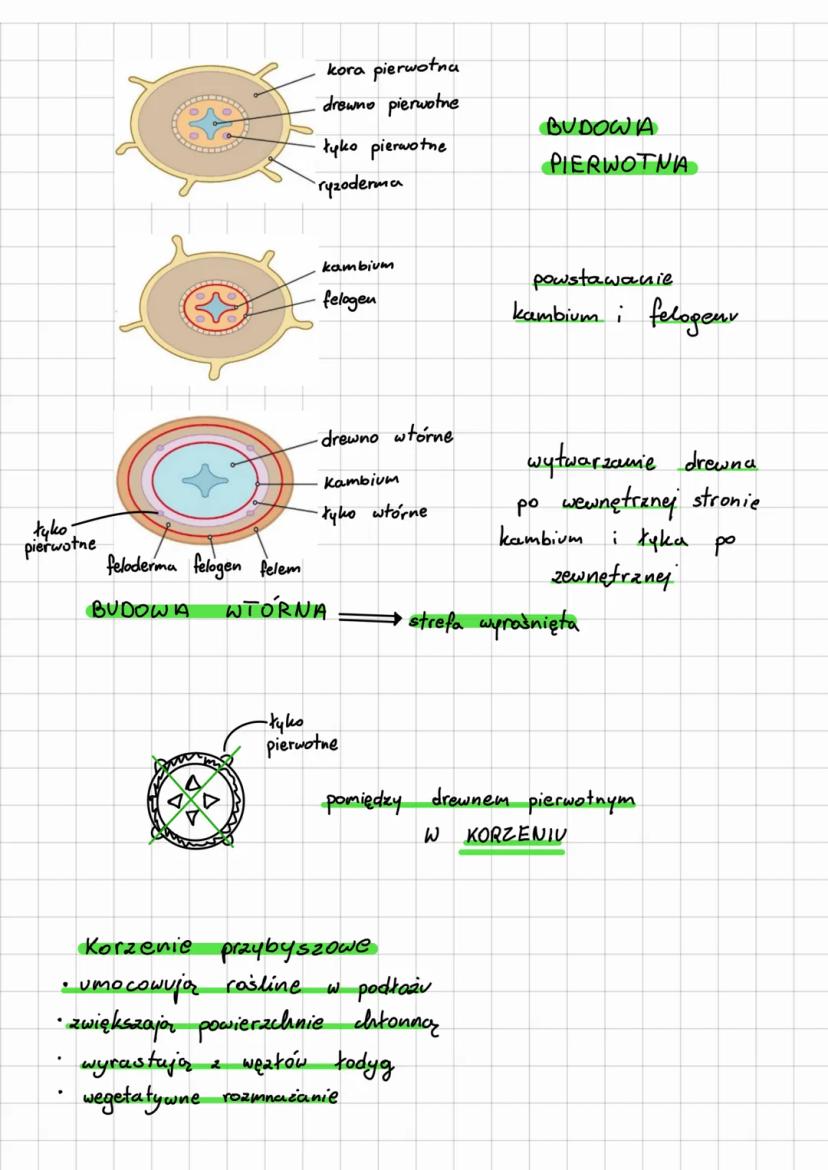 kora pierwotna
drewno pierwotne
łyko pierwotne
ryzoderma
BUDOWA
PIERWOTNA
kambium
felogen
powstawanie
kambium i felogenu
drewno wtórne
kambium
łyko wtórne
łyko
pierwotne
feloderma felogen felem
wytwarzanie drewna
po wewnętrznej stronie
kambium i łyka po
zewnętrznej
BUDOWA WTÓRNA
strefa wyrośnięta
łyko
pierwotne
pomiędzy drewnem pierwotnym
W KORZENIU
Korzenie przybyszowe
• umocowują rośline w podłożu
• zwiększają powierzchnie chłonną
• wyrastają z węzłów łodyg
• wegetatywne rozmnażanie